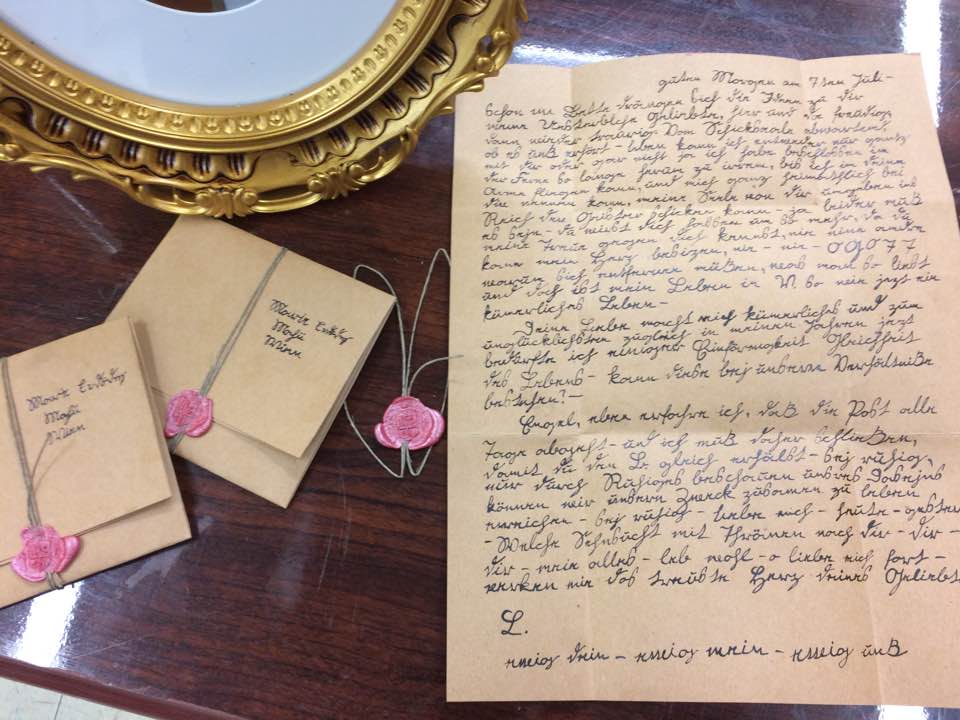 Wien
Wien
guten Morgen am 7ten Juli-
schon im Bette drängen sich die Ideen zu dir
meine Unsterbliche Geliebte, hier und da freudig
dann wieder traurig vom Schicksaale abwartend,
ob es unß erhört – leben kann ich entweder nur ganz
mit dir oder gar nicht ja ich habe beschlossen in
der Ferne so lange herum zu irren, bis ich in deine
Arme fliegen kann, und mich ganz heimathlich bei
dir nennen kann, meine Seele von dir umgeben ins
Reich der Geister schicken kann – ja leider muß
es sejn – du wirst dich fassen um so mehr, da du
meine Treue gegen dich kennst, nie eine andre
kann mein Herz besizen, nie – nie – O Gott
warum sich entfernen müßen, was man so liebt
und doch ist mein Leben in W. so wie jezt ein
kümmerliches Leben –
Deine Liebe macht mich und zum
unglücklichsten zugleich in meinen Jahren jezt
bedürfte ich einiger Einförmigkeit Gleichheit
des Lebens – kann diese bej unserm Verhältniße
bestehen? –
Engel, eben erfahre ich, daß die Post alle
Tage abgeht – und ich muß daher schließen,
damit du den B. gleich erhälst – sej ruhig,
nur durch Ruhiges beschauen unsres Dasejns
können wir unsern Zweck zusamen zu leben
erreichen – sej ruhig – liebe mich – heute – gestern
- Welche Sehnsucht mit Thränen nach dir – dir –
dir – mein alles – leb wohl – o liebe mich fort –
verken nie das treuste Herz deines Geliebt
L.
ewig dein – ewig mein – ewig unß